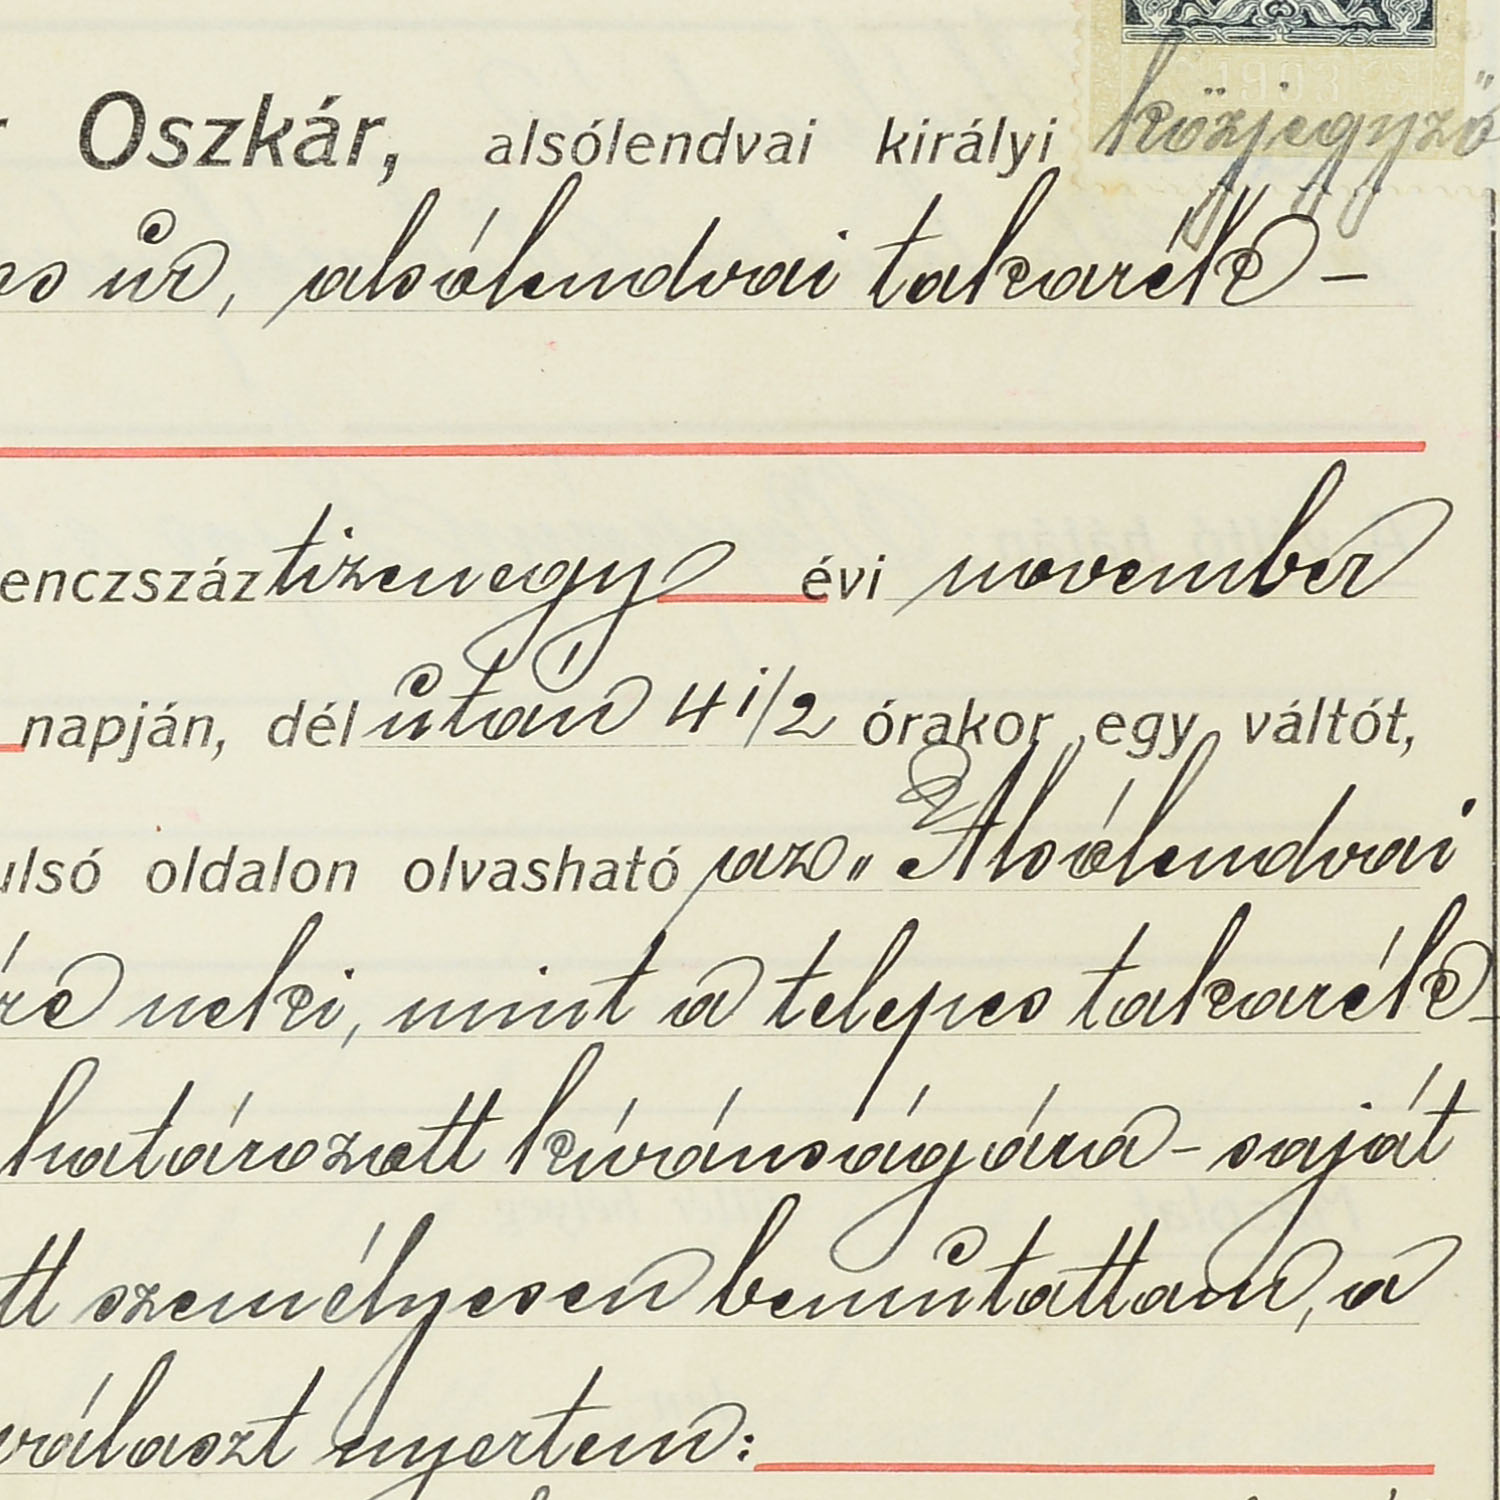 r Oszkár, alsólendvai királyi közjegyző
es úr, alsólendvai takarék-
enczszáz tizenegy évi november
napján, dél után 4 1/2 órakor egy váltót,
ulsó oldalon olvasható az „Alsólendvai
re neki, mint a telepes takarék-
határozott kívánságára - saját
tt személyesen bemutattam, a
választ nyertem: